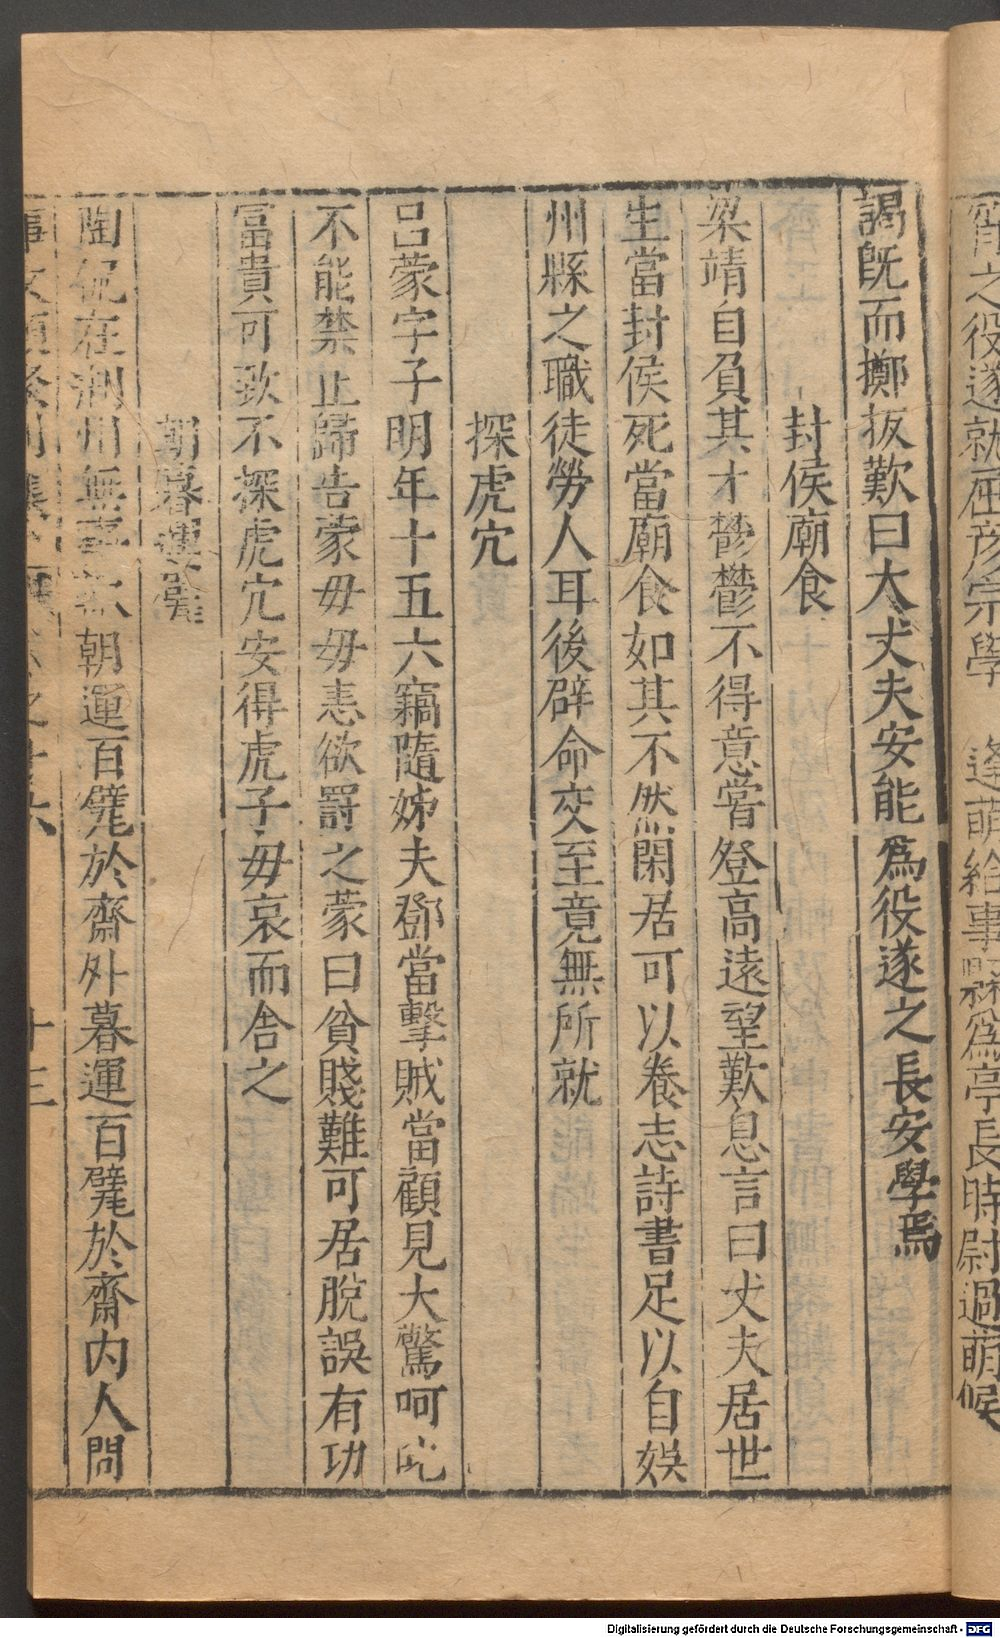 齊之役遂就在彦宗學　逢萌給事縣爲亭長時尉過萌候
謁旣而擲扳歎曰大丈夫安能爲役遂之長安學焉
封侯廟食
梁靖自負其才鬱鬱不得意嘗登高遠望歎息言曰丈夫居世
生當封侯死當廟食如其不然閑居可以養志詩書足以自娛
州縣之職徒勞人耳後辟命交至竟無所就
探虎穴
呂蒙字子明年十五六竊隨姊夫鄧當擊賊當顧見大驚呵叱
不能禁止歸告蒙毋毋恚欲罸之蒙曰貧賤難可居脫誤有功
富貴可致不探虎穴安得虎子毋哀而舍之
朝暮運甓
陶侃在州無事朝運百甓於齋外暮運百甓於齋内人問
事文類聚别集卷之廿六　十三
Digitalisierung gefördert durch die Deutsche Forschungsgemeinschaft - DFG